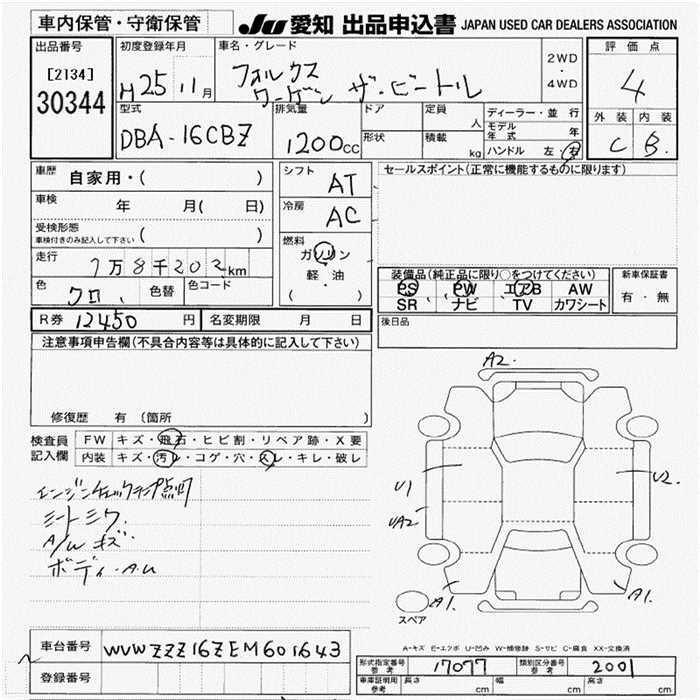 車内保管・守衛保管
JU 愛知 出品申込書 JAPAN USED CAR DEALERS ASSOCIATION
出品番号
[2134]
30344
初度登録年月
H25 11月
車名・グレード
フォルクス
ワーゲン ザ・ビートル
2WD
・
4WD
評価点
4
外装 内装
C B
型式
DBA-16CBZ
排気量
1200cc
ドア
形状
定員 人
積載 kg
ディーラー・並行
モデル年式 年
ハンドル 左・右
車歴
自家用・( )
車検
年 月( 日)
受検形態
車検付きのみ記入して下さい ( )
走行
7万8千202km
色
クロ
色替
色コード
シフト
AT
冷房
AC
燃料
ガソリン
軽・油
( )
セールスポイント(正常に機能するものに限ります)
装備品(純正品に限り○をつけてください)
PS PW エアB AW
SR ナビ TV カワシート
新車保証書
有・無
R券 12450円
名変期限 月 日
後日品
注意事項申告欄(不具合内容等は具体的に記入して下さい)
修復歴 有 (箇所 )
検査員
記入欄
FW キズ・飛石・ヒビ割・リペア跡・X要
内装 キズ・汚レ・コゲ・穴・スレ・キレ・破レ
エンジンチェックランプ点灯
シートミワ
A/W キズ
ボディ・AU
A2
U1
UA2
U2
A1
A1
スペア
A-キズ E-エクボ U-凹み W-補修跡 S-サビ C-腐食 XX-交換済
車台番号
WVWZZZ16ZEM601643
登録番号
形式指定番号
参考
17077
類別区分番号
参考
2001
車庫証明用
参考
長さ cm
幅 cm
高さ cm